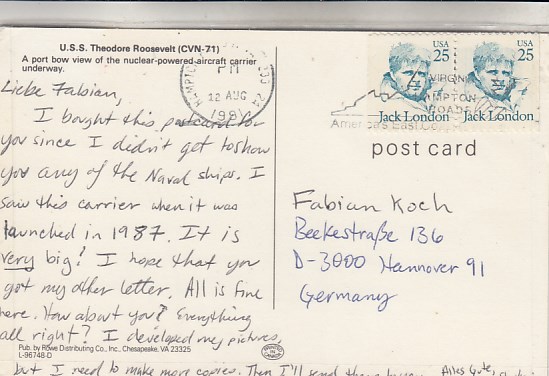 U.S.S. Theodore Roosevelt (CVN-71)
A port bow view of the nuclear-powered-aircraft carrier
underway.
Liebe Fabian,
I bought this postcard for
you since I didn't get to show
you any of the Naval ships. I
saw this carrier when it was
launched in 1987. It is
very big! I hope that you
got my other letter. All is fine
here. How about you? Everything
all right? I developed my pictures,
Pub. by Rowe Distributing Co., Inc., Chesapeake, VA 23325
L-96748-D
but I need to make more copies. Then I'll send them
Alles Gute,
PM
12 AUG
USA
25
Jack London
USA
25
Jack London
VIRGIN
MPTON
ROADS
America's East Co
post card
Fabian Koch
Beekestraße 136
D-3000 Hannover 91
Germany